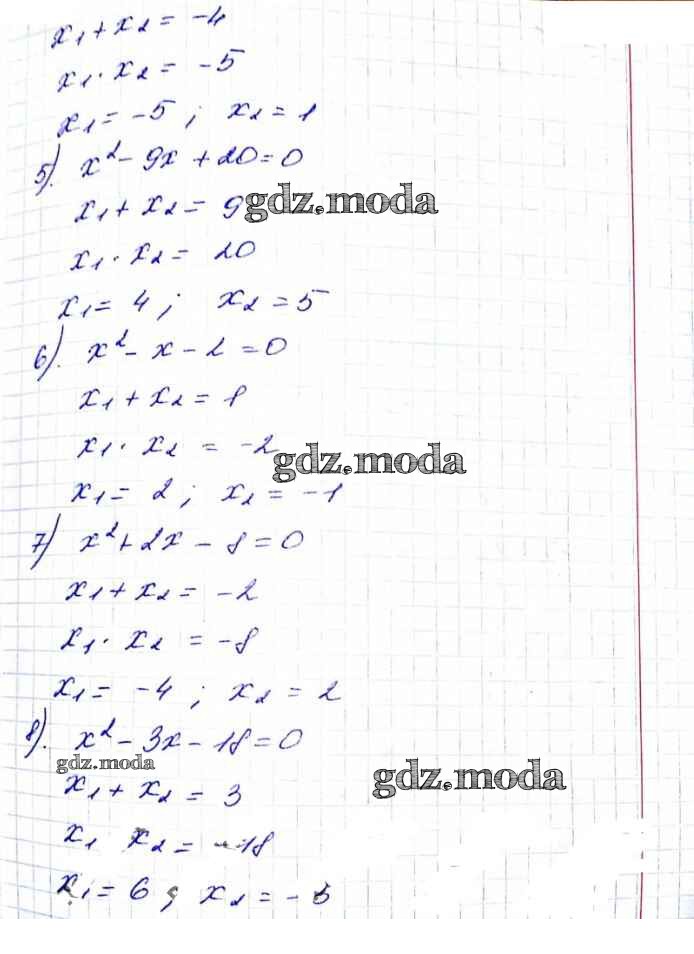 x₁ + x₂ = -4
x₁ · x₂ = -5
x₁ = -5 ; x₂ = 1
5). x² - 9x + 20 = 0
x₁ + x₂ = 9
gdz.moda
x₁ · x₂ = 20
x₁ = 4 ; x₂ = 5
6). x² - x - 2 = 0
x₁ + x₂ = 1
x₁ · x₂ = -2
gdz.moda
x₁ = 2 ; x₂ = -1
7) x² + 2x - 8 = 0
x₁ + x₂ = -2
x₁ · x₂ = -8
x₁ = -4 ; x₂ = 2
8). x² - 3x - 18 = 0
gdz.moda
gdz.moda
x₁ + x₂ = 3
x₁ x₂ = -18
x₁ = 6 ; x₂ = -